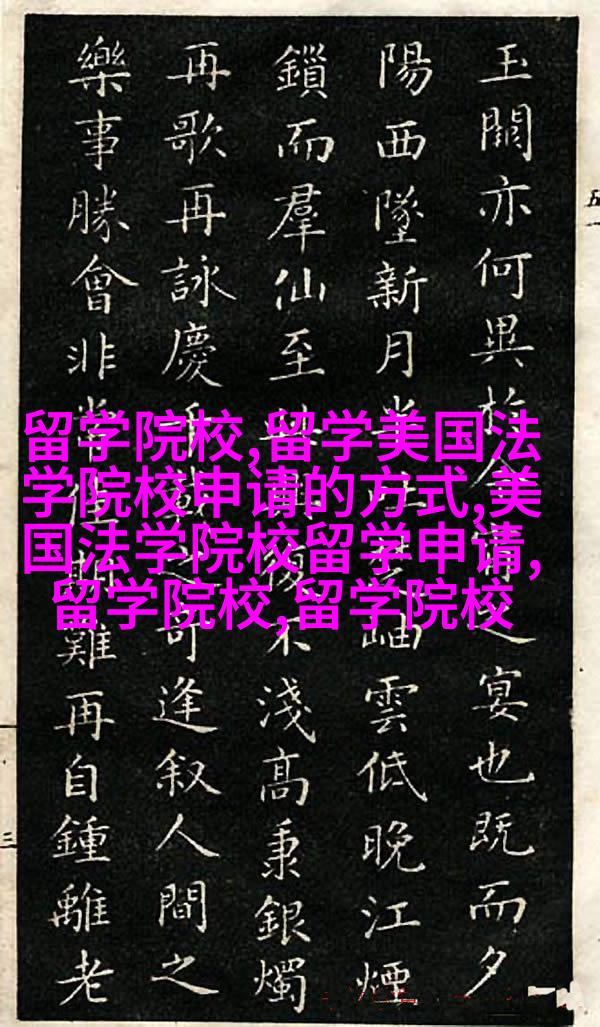 玉闕亦何異於人之宴也既而夕
陽西墜新月岫雲低晚江煙
鎖而羣仙至復不淺高秉銀燭
再歌再詠慶千載之奇逢叙人間之
樂事勝會非常佳期難再自鍾離老
留学院校,留学美国法
学院校申请的方式,美
国法学院校留学申请,
留学院校,留学院校
五一
三